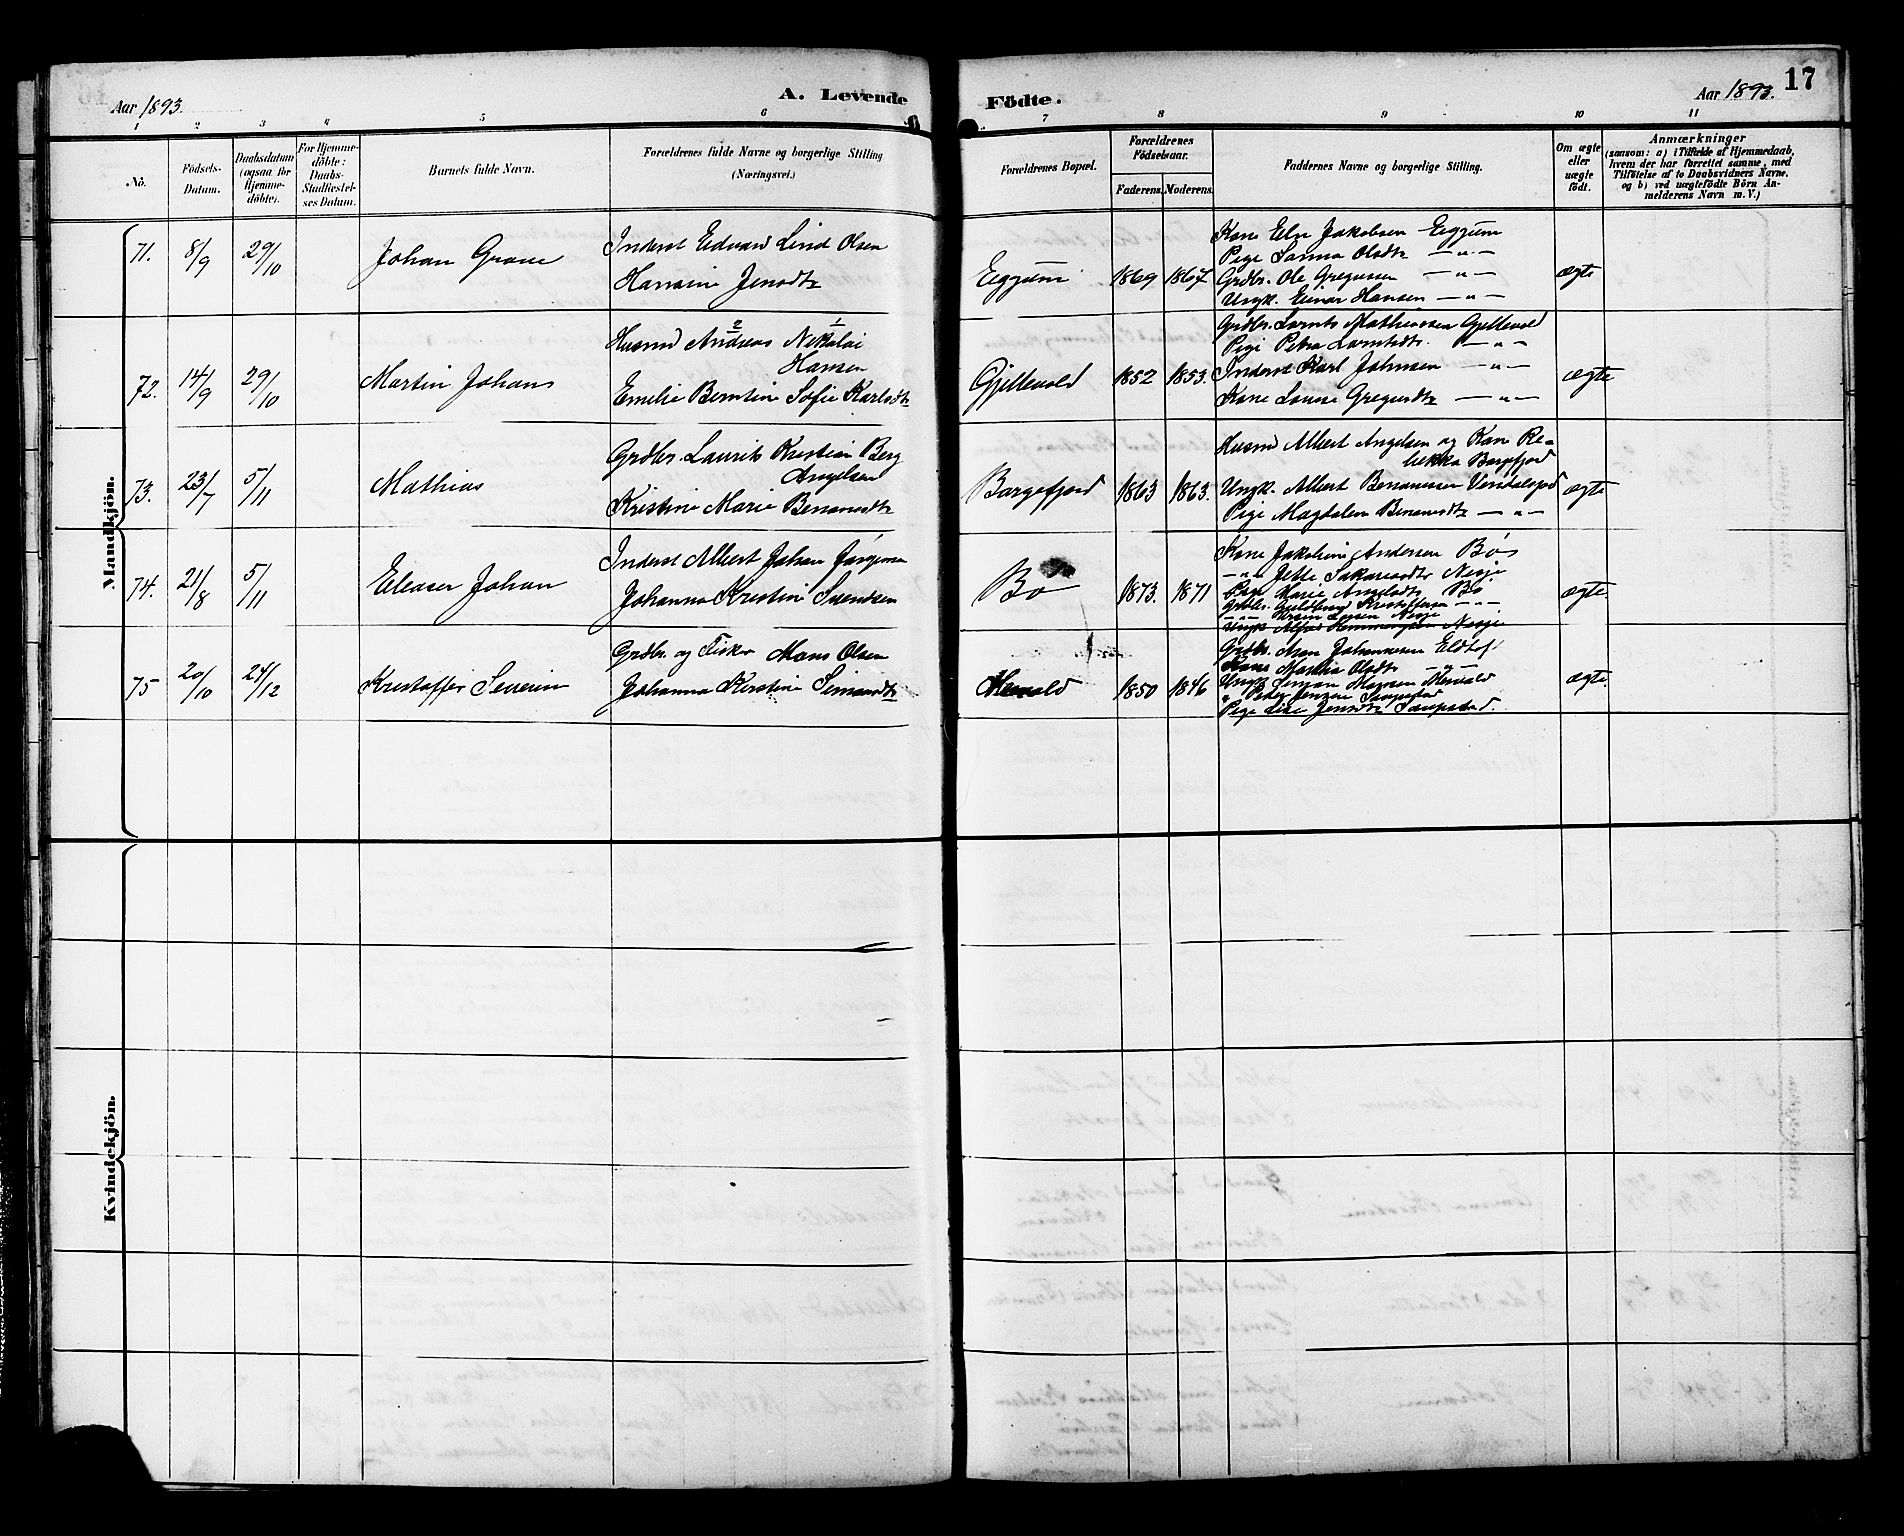 Aar 1893.
A. Levende
Födte.
Aar 1893.
17
1 2 3 4 5 6 7 8 9 10 11
No.
Födsels-
Datum.
Daabsdatum
(ogsaa for
Hjemme-
döbte).
For Hjemme-
döbte:
Daabs-
Stadfæstel-
ses Datum.
Burnets fulde Navn.
Forældrenes fulde Navne og borgerlige Stilling
(Næringsvei.)
Forældrenes Bopæl.
Forældrenes
Födselsaar.
Faderens. Moderens.
Faddernes Navne og borgerlige Stilling.
Om ægte
eller
uægte
födt.
Anmærkninger
(saasom: a) i Tilfælde af Hjemmedaab,
hvem der har forrettet samme, med
Tilföielse af to Daabsvidners Navne.
og b) ved uægtefödte Börn An-
melderens Navn m. V.)
Mandkjön.
71. 8/9 29/10 Johan Grove
Inderst Edvard Lind Olsen
Hansine Jensdtr
Eggum 1869 1867
Kone Eln Jakobsen Eggum
Pige Sanna Olsdtr — " —
Grdbr. Ole Gregussen — " —
Ungk. Einar Hansen — " —
ægte
72. 14/9 29/10 Martin Johans
Husmd Andreas Nikolai
2 1
Hansen
Emelie Berntine Sofie Karlsdtr
Gjellevold 1852 1853.
Grdbr. Lornts Mathiassen Gjellevold
Pige Petra Lorntsdtr. — " —
Inderst Karl Johnsen — " —
Kone Lovise Gregusdtr — " —
ægte
73. 23/7 5/11 Mathias
Grdbr. Laurits Kristian Berg
Angelsen
Kristine Marie Benonisdtr
Borgefjord 1863 1863.
Husmd Albert Angelsen og Kone Re-
bekka Borgefjord
Ungk. Albert Benonisen
Pige Magdalen Benonisdtr — " —
ægte
74. 21/8 5/11 Eleaser Johan
Inderst Albert Johan Jörgensen
Johanna Kristine Svendsen
Bö 1873. 1871
Kone Jakobine Andersen Bös
— " — Jette Sakariasdtr Nesje
Pige Marie Angelsdtr Bö
Grdbr. Guldbrand Kristoffersen — " —
ægte.
75 20/10 24/12 Kristoffer Severin
Grdbr. og Fisker Mons Olsen
Johanna Kirstine Simonsdtr
Mervold 1850 1846
Grdbr. Johannesen
Kone Martha Olsdtr — " —
Ungk. Simon Monsen Mervold
" Peder Jensen Saupstad
Pige Lise Jensdtr Saupstad.
ægte.
Kvindekjön.